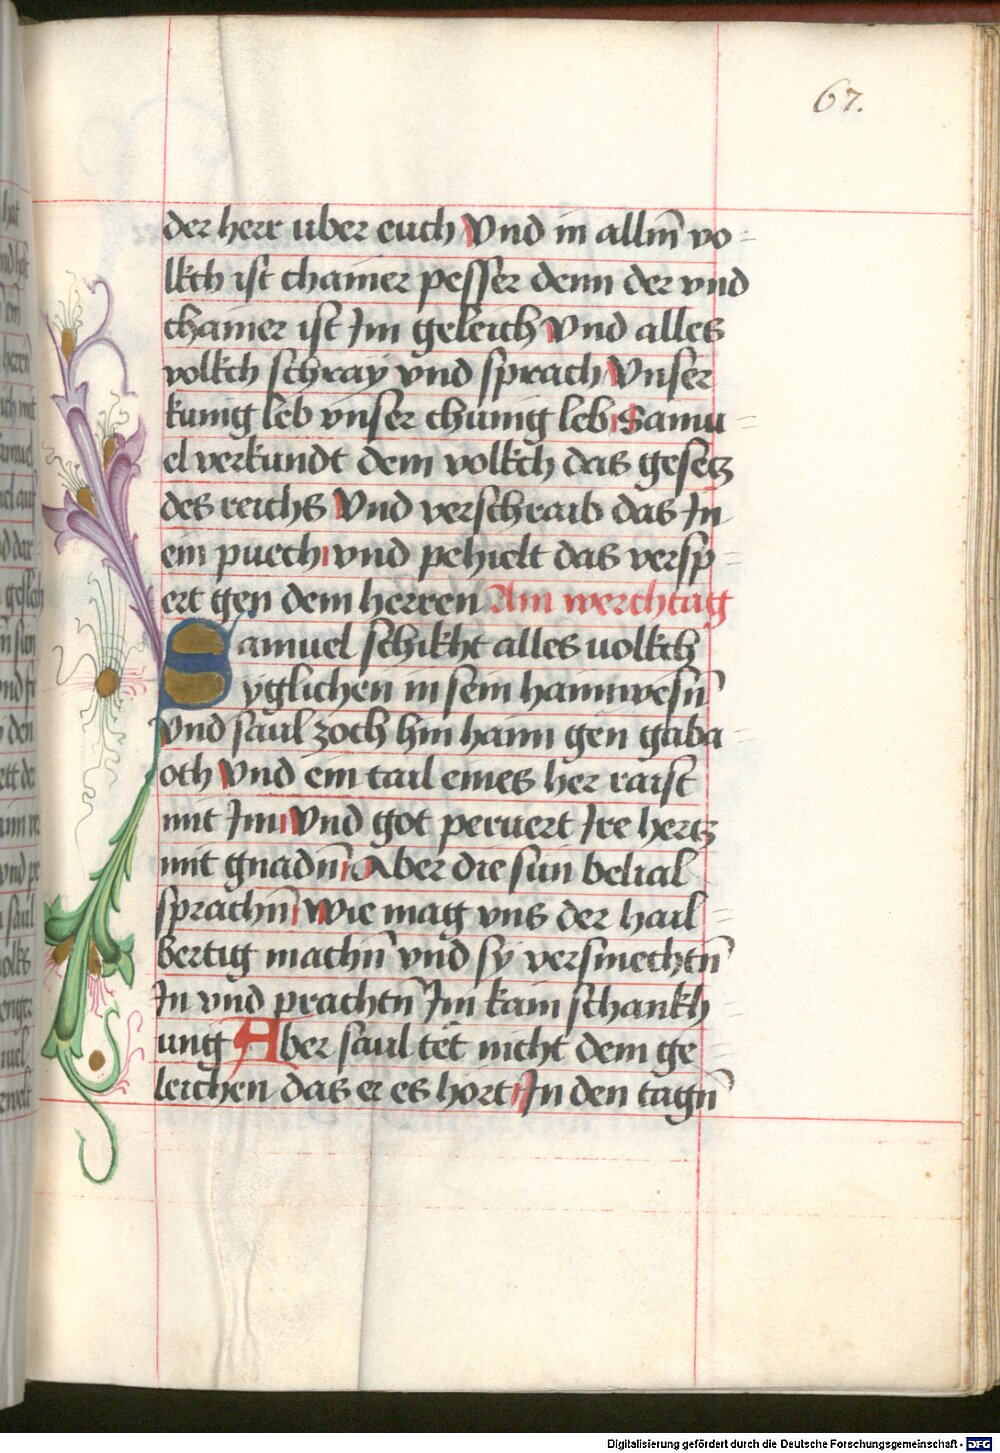 67.
der herr uber euch Vnd in allm̄ vo-
lkch ist chainer pesser denn der vnd
chainer ist Im geleich Vnd alles
volkch schray vnd sprach Vnser
kunig leb vnser chunig leb Samu-
el verkundt dem volkch das gesetz
des reichs Vnd verschraib das In
ein puech vnd pehielt das versp-
ert gen dem herren Am werchtag
Samuel schikht alles uolkch
yglichen in sein haimwesn̄
Vnd saul zoch hin haim gen gaba-
oth Vnd ein tail eines her raist
mit Im Vnd got peruert Ire hertz
mit gnadn̄ Aber die sün belial
sprachn̄ Wie mag vns der hail
bertig machn̄ vnd sy versmechtn̄
In vnd prachtn̄ Im kain schankh
ung Aber saul tet nicht dem ge
leichen das er es hort In den tagn̄
Digitalisierung gefördert durch die Deutsche Forschungsgemeinschaft - DFG